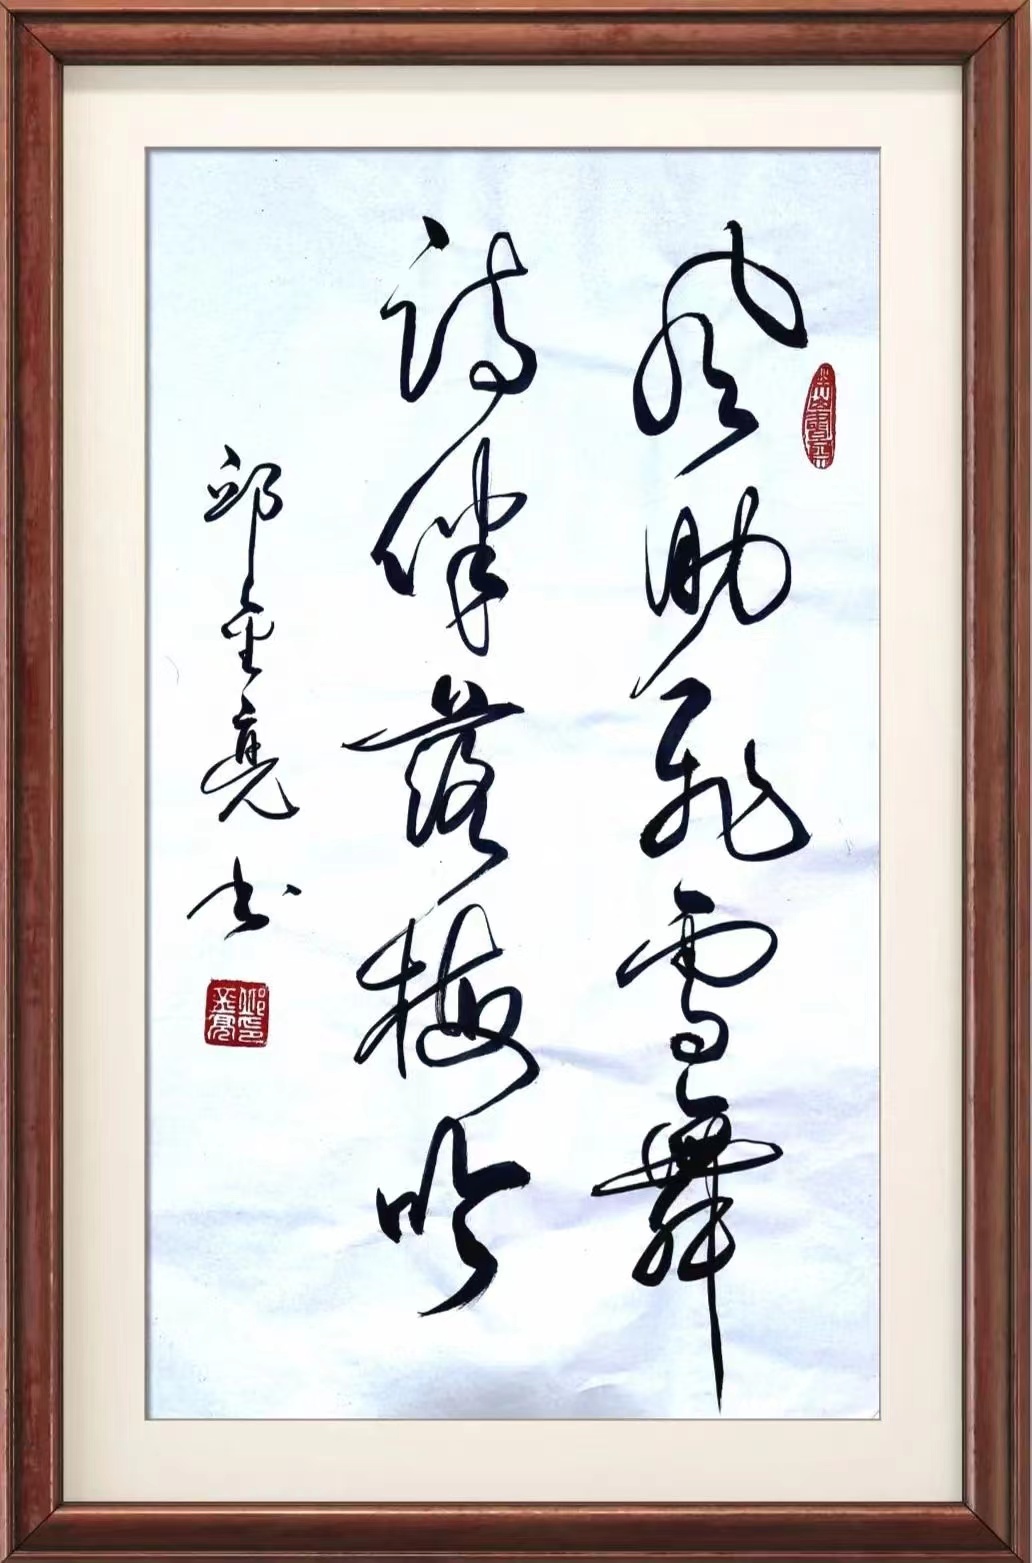 风助飞雪舞
诗伴落梅吟
邱金亮书